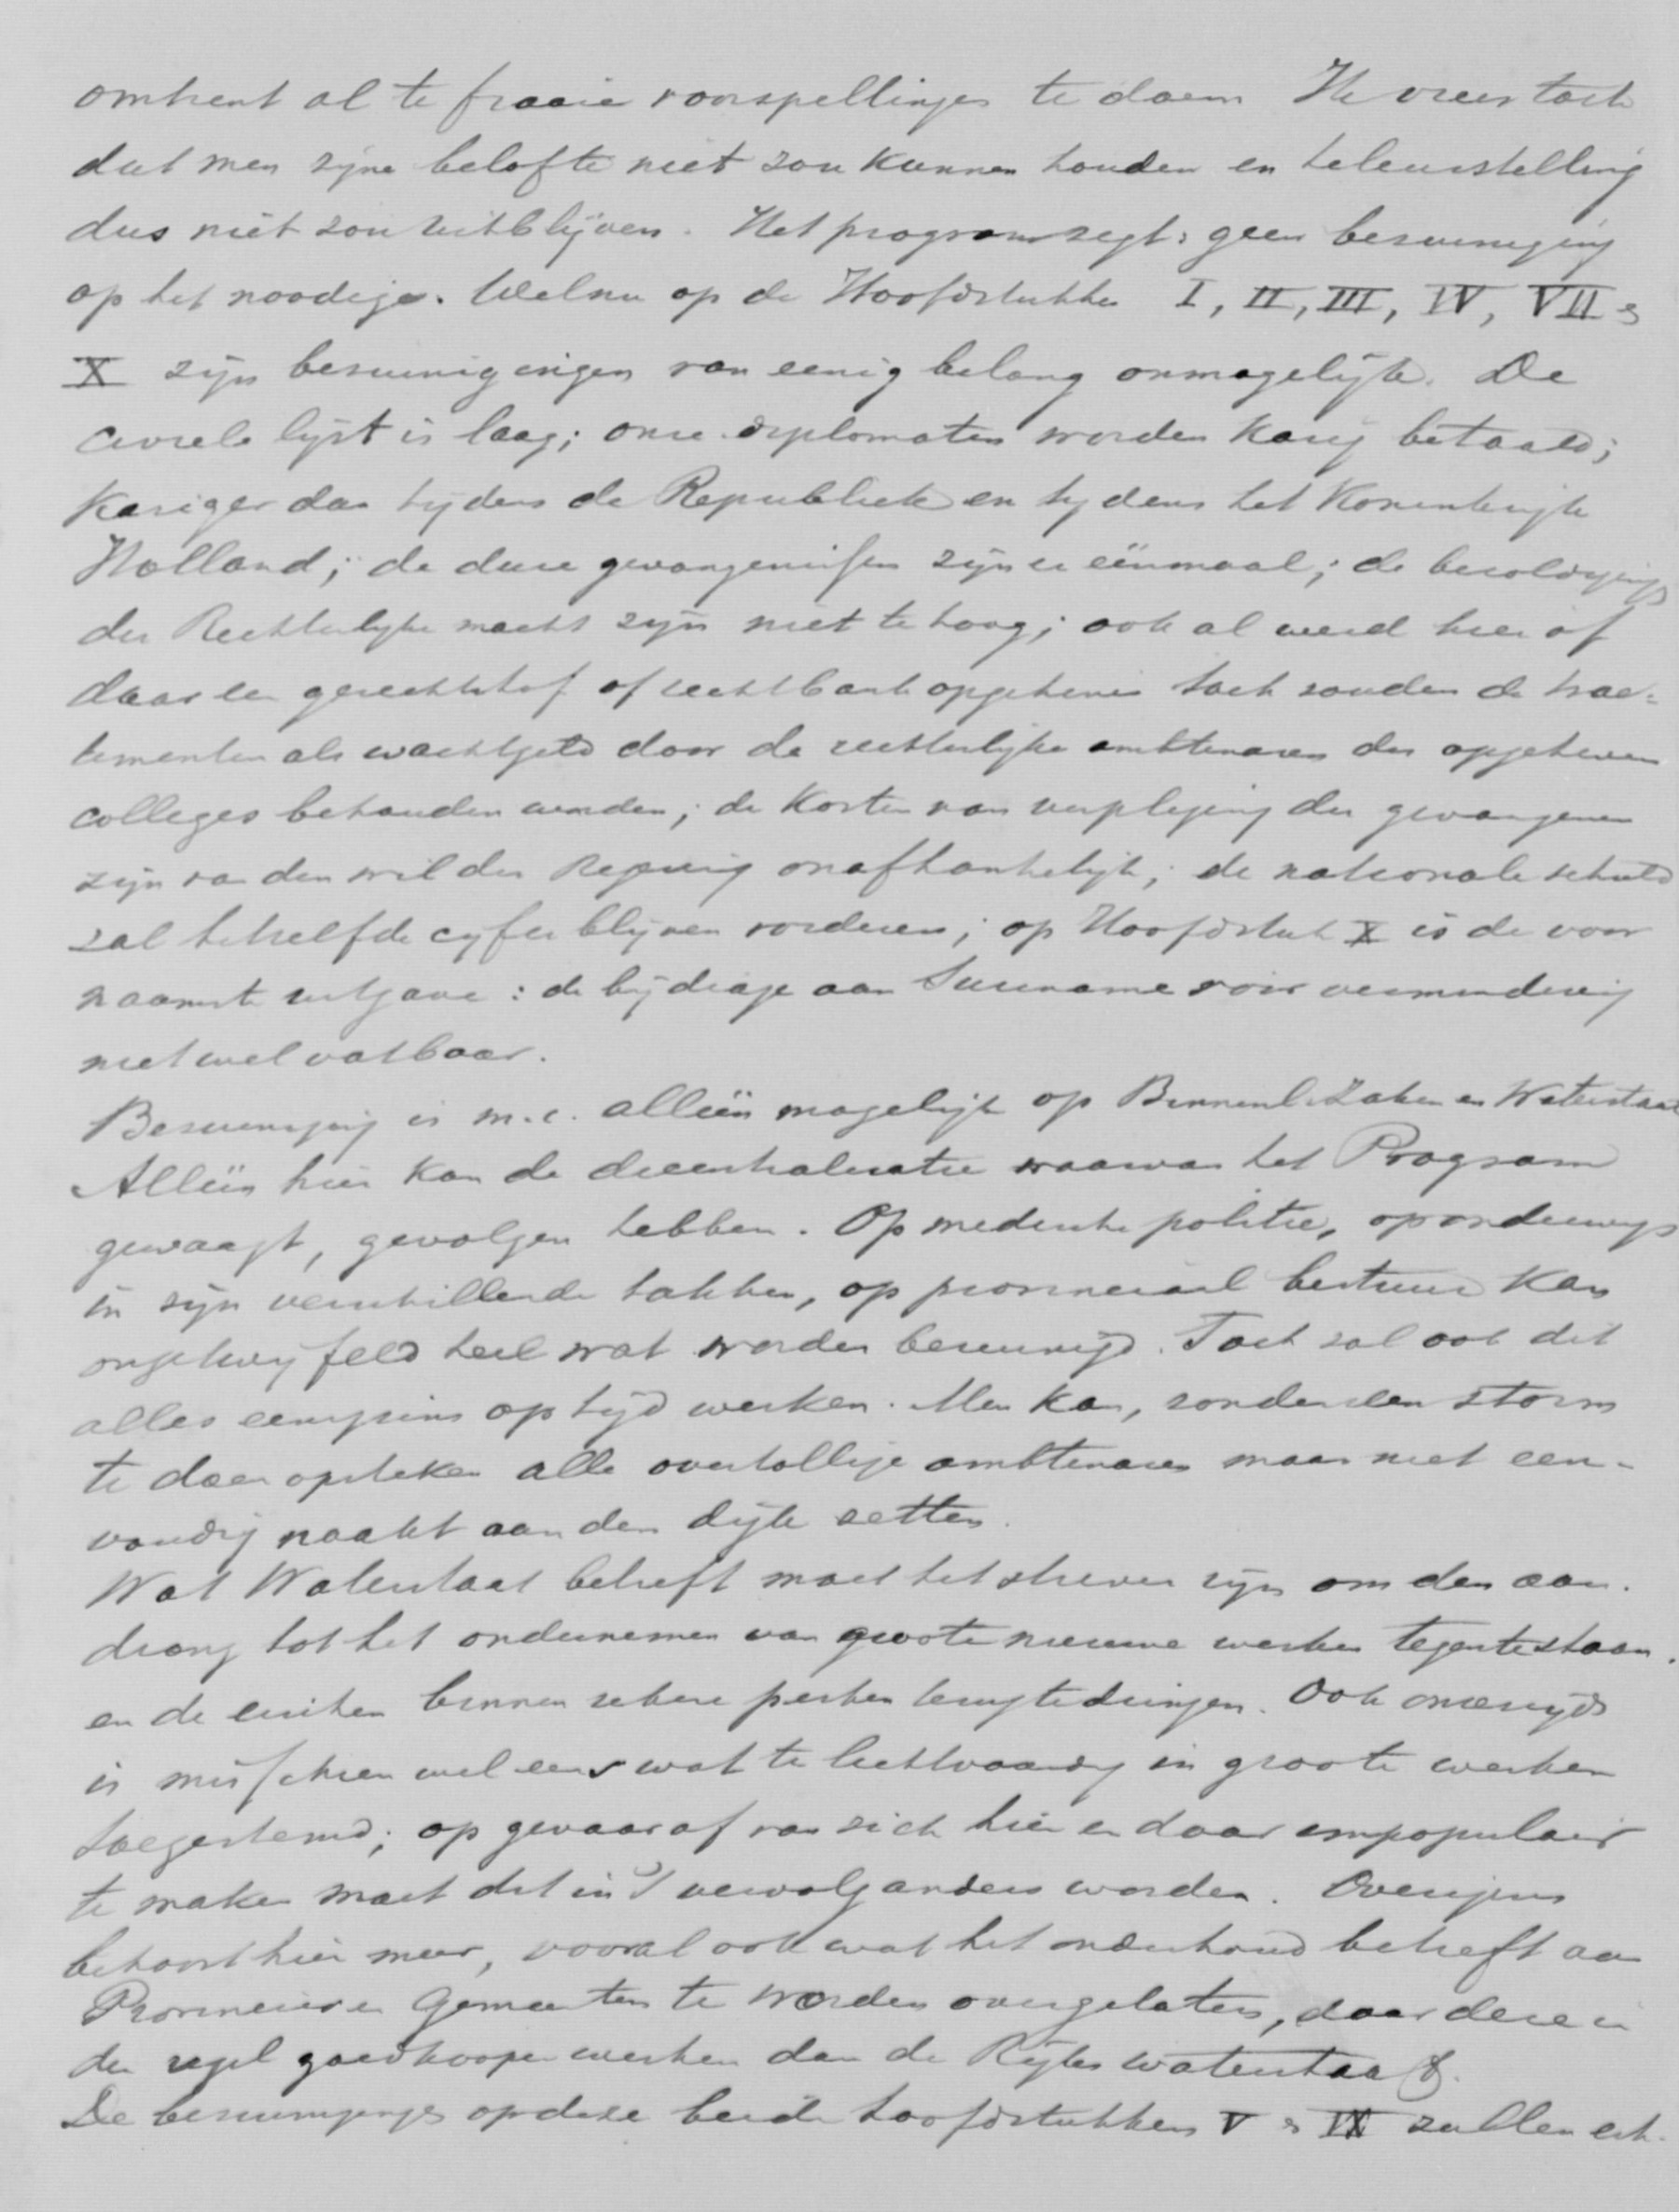 omtrent al te fraaie voorspellingen te doen. Ik vrees toch
dat men zijne belofte niet zou kunnen houden en teleurstelling
dus niet zou uitblijven. Het program zegt: geen bezuiniging
op het noodige. Welnu op de Hoofdstukken I, II, III, IV, VII &
X zijn bezuinigingen van eenig belang onmogelijk. De
civiele lijst is laag; onze diplomaten worden karig betaald;
kariger dan tijdens de Republiek en tijdens het Koninkrijk
Holland; de dure gevangenissen zijn er éénmaal; de bezoldigings
der Rechterlijke macht zijn niet te hoog; ook al werd hier of
daar een gerechtshof of rechtbank opgeheven toch zouden de trac-
tementen als wachtgeld door de rechterlijke ambtenaren der opgeheven
colleges behouden worden; de kosten van verpleging der gevangenen
zijn van den wil der Regering onafhankelijk; de nationale schuld
zal hetzelfde cijfer blijven vorderen; op Hoofdstuk X is de voor
naamste uitgave: de bijdrage aan Suriname voor vermindering
niet wel vatbaar.
Bezuiniging is m.i. alléén mogelijk op Binnenl. Zaken en Waterstaat
Alléén hier kan de decentralisatie waarvan het Program
gewaagt, gevolgen hebben. Op medische politie, op onderwijs
in zijn verschillende takken, op provinciaal bestuur kan
ongetwijfeld heel wat worden bezuinigd. Toch zal ook dit
alles eenigzins op tijd werken. Men kan, zonder een storm
te doen opsteken alle overtollige ambtenaren maar niet een-
voudig naakt aan den dijk zetten.
Wat Waterstaat betreft moet het streven zijn om den aan-
drang tot het ondernemen van groote nieuwe werken tegen te staan.
en de eischen binnen zekere perken terug te dringen. Ook onzerzijds
is misschien wel eens wat te lichtvaardig in groote werken
toegestemd; op gevaar af van zich hier en daar impopulair
te maken moet dit in 't vervolg anders worden. Overigens
behoort hier meer, vooral ook wat het onderhoud betreft aan
Provincies en Gemeenten te worden overgelaten, daar deze in
den regel goedkooper werken dan de Rijks waterstaat.
De bezuinigings op deze beide hoofdstukken V & IX zullen ech-